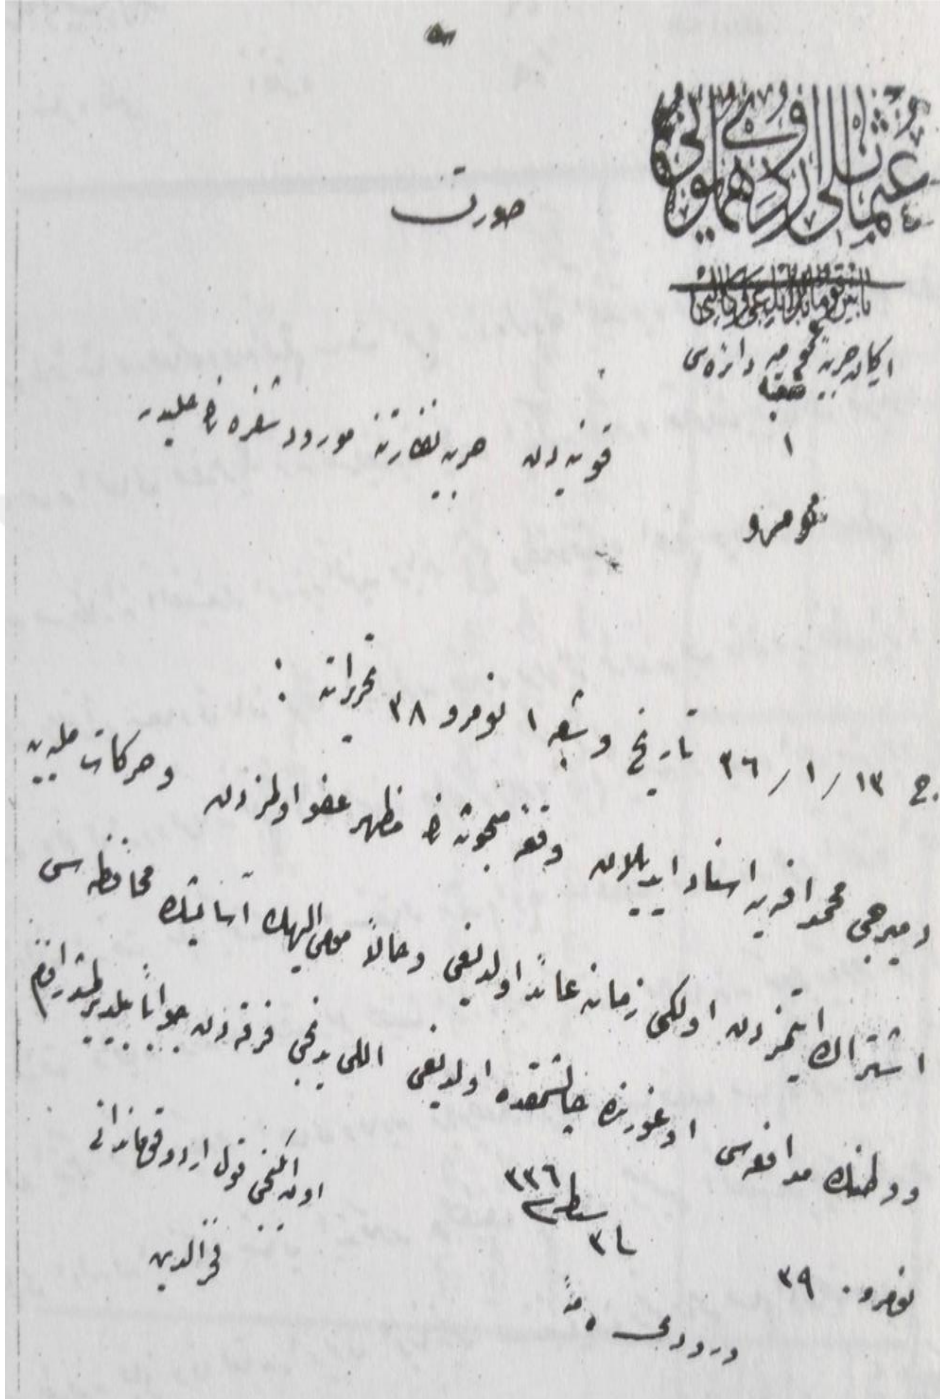 صورت
عثمانلی اردوی همایونی
باش قوماندانلغی وكالتی
دائره‌سی
١
قونیه‌دن حربیه نظارتنه مورود شفره
نومرو
ج ١٣/١/٣٦ تاریخ و شعبه ١ نومرو ٣٨ تحریراته :
دمیرجی محمد افه‌یه اسناد ایدیلان وقعه مظهر عفو اولمزدن و حرکات ملیه‌یه
اشتراك ایتمزدن اولكی زمانه عائد اولدیغی و حالاً مومی الیهك آسایشك محافظه‌سی
و وطنك مدافعه‌سی اوغورنده چالشمقده اولدیغی اللی یدنجی فرقه‌دن جواباً بیلدیرلمشدر افندم
اون ایكنجی قول اردو قوماندانی
فخرالدین
٣٣٦
٣١
نومرو ٣٩
ورودی